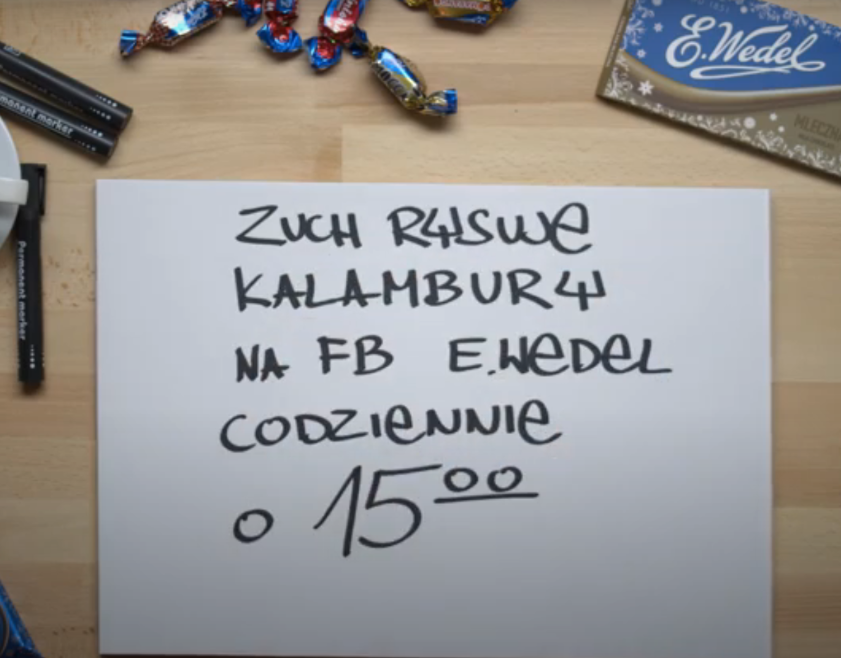 E.Wedel
MLECZNA
Permanent marker
Permanent marker
ZUCH RYSUJE
KALAMBURY
NA FB E.WEDEL
CODZIENNIE
O 15⁰⁰